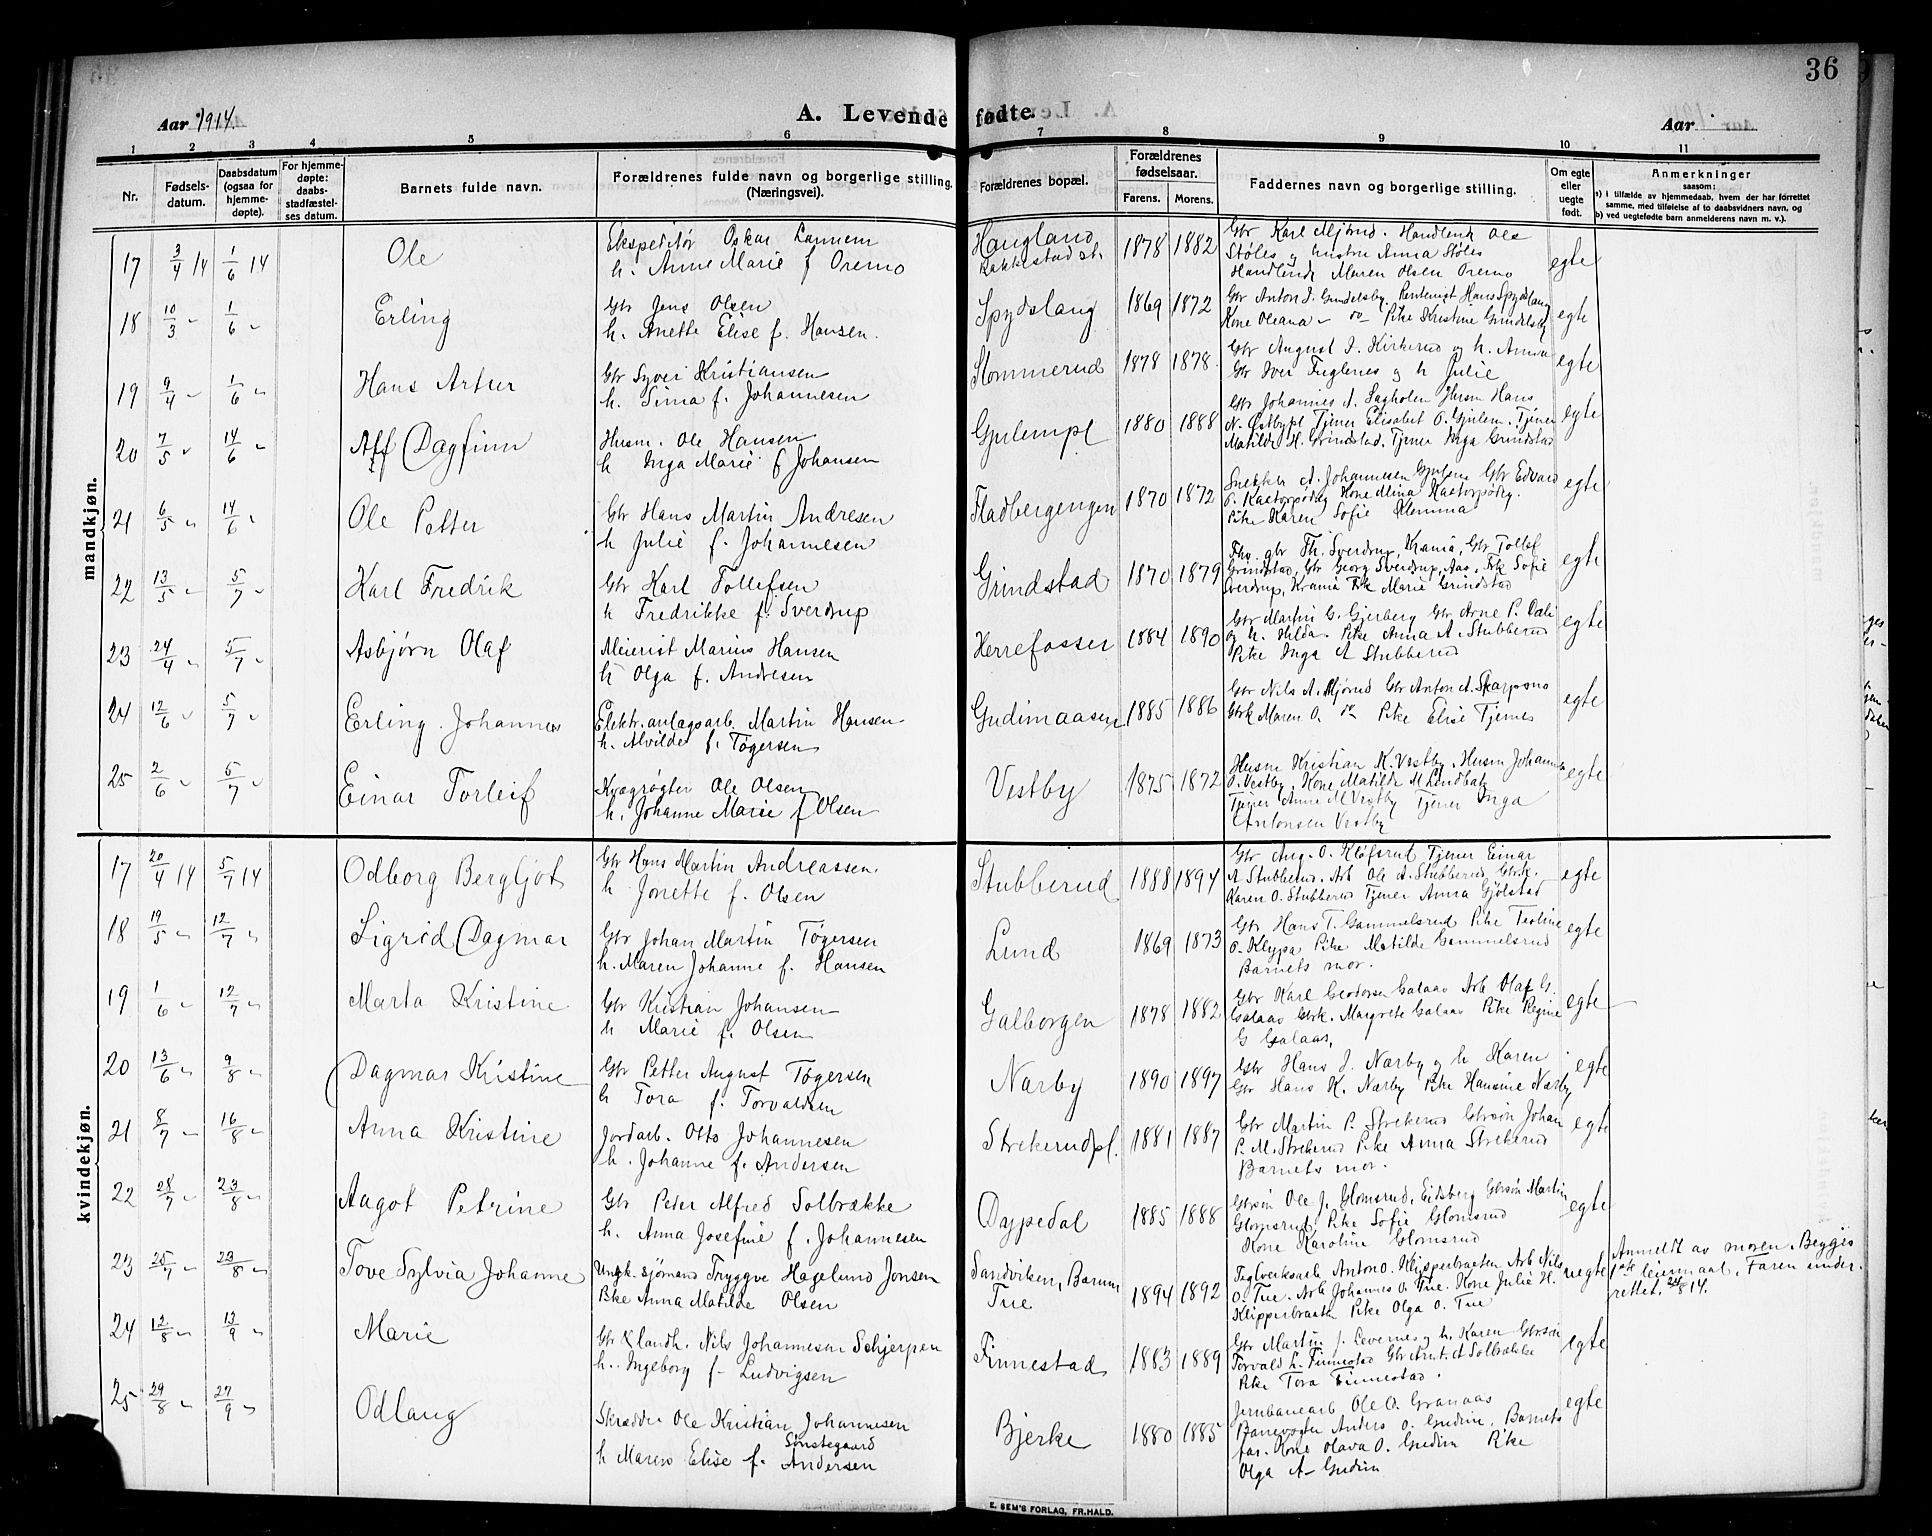 36
Aar 1914.
A. Levende fødte.
Aar
1 2 3 4 5 6 7 8 9 10 11
Nr.
Fødsels-
datum.
Daabsdatum
(ogsaa for
hjemme-
døpte).
For hjemme-
døpte:
daabs-
stadfæstel-
ses datum.
Barnets fulde navn.
Forældrenes fulde navn og borgerlige stilling.
(Næringsvei).
Forældrenes bopæl.
Forældrenes
fødselsaar.
Farens. Morens.
Faddernes navn og borgerlige stilling.
Om egte
eller
uegte
født.
Anmerkninger
saasom:
a) i tilfælde av hjemmedaab, hvem der har forrettet
samme, med tilføielse af to daabsvidners navn, og
b) ved uegtefødte barn anmelderens navn m. v.).
mandkjøn.
17 3/4 14 1/6 14 Ole Ekspeditør Oskar Lannem
h. Anne Marie f Oremo
Haugland
Rakkestad st.
1878 1882
Gbr Karl Mjørud. Handlende Ole
Støles og hustru Anna Støles
Handlende Maren Olsen Oremo
egte
18 10/3 " 1/6 " Erling Gbr Jens Olsen
h. Anette Elise f. Hansen.
Spydslaug 1869 1872
Gbr Anton J. Gundelsby. Rentenist Hans Spydslaug
Kone Oleana - do - Pike Kristine Grindelsby
egte
19 9/4 " 1/6 " Hans Artur Gbr Syver Kristiansen
h. Sina f. Johannesen
Slommerud 1878 1878.
Gbr August J. Kirkerud og h. Anna
Gbr Iver Fuglenes og h Julie
egte
20 7/5 " 14/6 " Alf Dagfinn Husm. Ole Hansen
h Inga Marie f Johansen
Gjulempl 1880 1888
Gbr Johannes A. Sagholen Husm Hans
N. Østbypl Tjener Elisabet O. Gjulem. Tjener
Matilde H. Grindstad. Tjener Inga Grindstad
egte
21 6/5 " 14/6 " Ole Petter Gbr Hans Martin Andresen
h Julie f. Johannesen
Fladbergengen 1870 1872
Snekker A. Johannesen Gjulem Gbr Edvard
O. Kastorpødeg Kone Mina Kastorpødeg.
Pike Karen Sofie Klemma
egte
22 13/5 " 5/7 " Karl Fredrik Gbr Karl Tollefsen
h Fredrikke f. Sverdrup
Grindstad 1870 1879
Fhv. gbr Th. Sverdrup, Krania, Gbr Tollef
Grindstad, Gbr Georg Sverdrup, Aas, Frk Sofie
Sverdrup, Krania Frk Marie Grindstad
egte
23 24/4 " 5/7 " Asbjørn Olaf Meierist Marius Hansen
h Olga f. Andresen
Herrefosser 1884 1890
Gbr Martin G. Gjerberg Gbr Arne P. Dæli
og h. Hilda. Pike Anna A. Stubberud
Pike Inga A Stubberud
egte
24 12/6 " 5/7 " Erling Johannes Elektr. anlægsarb Martin Hansen
h. Alvilde f. Tøgersen
Gudimaasen 1885 1886
Gbr Nils A. Mjørud Gbr Anton A. Skarpsno
Gbrk Maren O. do Pike Elise Tjernes
egte
25 2/6 " 5/7 " Einar Torleif Kvægrøgter Ole Olsen
h. Johanne Marie f Olsen
Vestby 1875 1872
Husm Kristian K. Vestby. Husm Johannes
O. Vestby. Kone Matilde M Lundbak
Tjener Anne M Vestby Tjener Inga
Antonsen Vestby
egte
kvindekjøn.
17 20/4 14 5/7 14 Odborg Bergljot Gbr Hans Martin Andreassen.
h Jonette f. Olsen
Stubberud 1888 1894
Gbr Aug. O. Kløfsrud Tjener Einar
A Stubberud. Arb Ole A. Stubberud Gbrk.
Karen O. Stubberud Tjener Anna Gjølstad
egte
18 19/5 " 12/7 " Sigrid Dagmar Gbr Johan Martin Tøgersen
h. Maren Johanne f. Hansen
Lund 1869 1873
Gbr Hans T. Gammelsrud Pike Teoline
O. Klypa Pike Matilde Gammelsrud
Barnets mor.
egte
19 1/6 " 12/7 " Marta Kristine Gbr Kristian Johansen
h Marie f. Olsen
Galborgen 1878 1882
Gbr Karl Teodorsen Galaas Arb Olaf G.
Galaas Gbrk. Margrete Galaas Pike Regine
G Galaas,
egte
20 13/6 " 9/8 " Dagmar Kristine Gbr Petter August Tøgersen
h Tora f. Torvaldsen
Narby 1890 1897
Gbr Hans J. Narby og h Karen
Gbr Hans K. Narby Pike Hansine Narby
egte
21 8/7 " 16/8 " Anna Kristine Jordarb. Otto Johannesen
h. Johanne f. Andersen
Strekerudpl. 1881 1887
Gbr Martin P. Strekerud Gbrsøn Johan
P. M. Strekerud Pike Anna Strekerud
Barnets mor.
egte
22 28/7 " 23/8 " Aagot Petrine Gbr Peter Alfred Solbrække
h. Anna Josefine f. Johannesen
Dypedal 1885 1888
Gbrsøn Ole J. Glomsrud, Eidsberg Gbrsøn Martin
Glomsrud, Pike Sofie Glomsrud
Kone Karoline Glomsrud
egte
23 25/7 " 23/8 " Tove Sylvia Johanne Ungk. sjømand Tryggve Hagelund Jonsen
Pike Anna Matilde Olsen
Sandviken, Bærum
Tue
1894 1892
Teglverksarb Anton O. Klipperbraaten Arb Nils
O. Tue. Arb Johannes O. Tue. Kone Julie H.
Klipperbraath Pike Olga O. Tue
uegte
Anmeldt av moren. Begges
1ste leiermaal. Faren under-
rettet. 24/8 14.
24 12/8 " 13/9 " Marie Gbr & landh. Nils Johannesen Schjerpen
h. Ingeborg f. Ludvigsen
Finnestad 1883 1889
Gbr Martin J. Levernes og h. Karen Gbrsøn
Torvald L. Finnestad Gbr Arnt. A Solbrække
Pike Tora Finnestad.
egte
25 29/8 " 27/9 " Odlaug Skrædder Ole Kristian Johannesen
Sønstegaard
h Maren Elise f. Andersen
Bjerke 1880 1885
Jernbanearb Ole O. Granaas
Banevogter Anders O. Gudim. Barnets
far. Kone Olava O. Gudim Pike
Olga A. Gudim
egte
E. SEM'S FORLAG, FR.HALD.